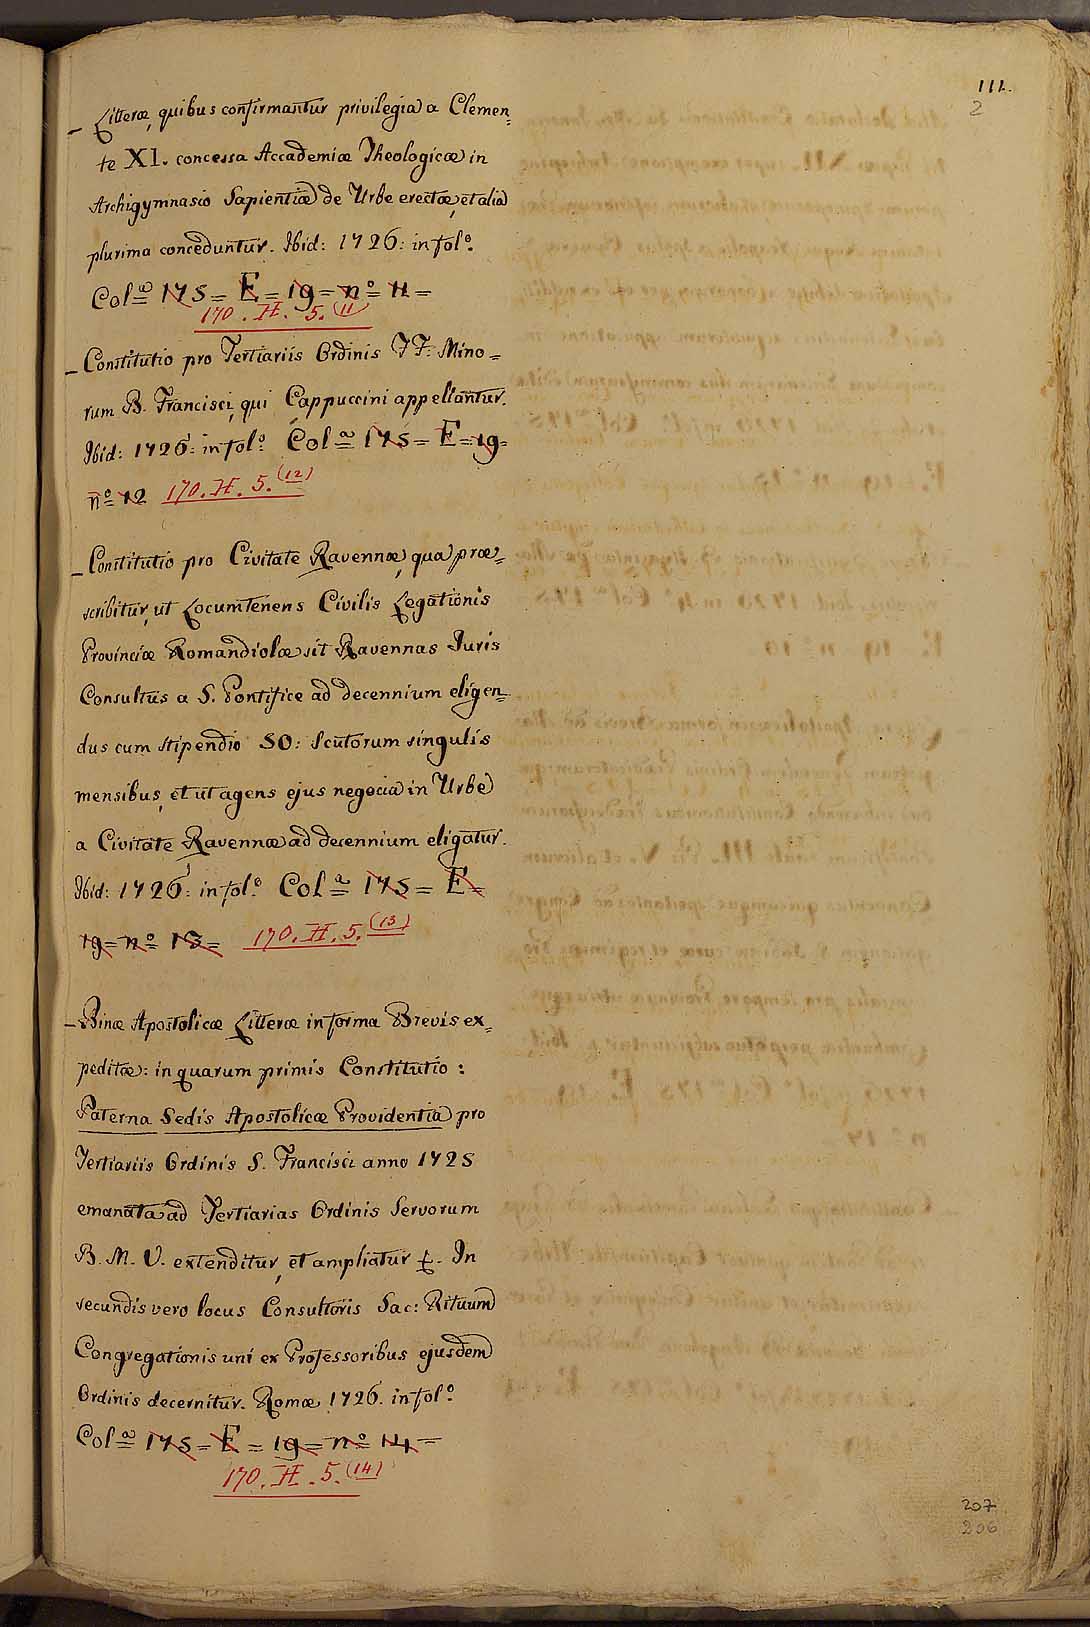 111.
2
_ Litteræ, quibus confirmantur privilegia a Clemen=
te XI. concessa Accademiæ Theologicæ in
Archigymnasio Sapientiæ de Urbe erectæ, et alia
plurima conceduntur. Ibid: 1726: in fol.º
Col.ª 175 = E = 19 = nº 11 =
170. H. 5. (11)
_ Constitutio pro Tertiariis Ordinis FF: Mino=
rum B. Francisci, qui Cappuccini appellantur.
Ibid: 1726: in fol.º Col.ª 175 = E = 19 =
nº 12 170. H. 5. (12)
_ Constitutio pro Civitate Ravennæ, qua præ=
scribitur, ut Locumtenens Civilis Legationis
Provinciæ Romandiolæ sit Ravennas Juris
Consultus a S. Pontifice ad decennium eligen=
dus cum stipendio 50: scutorum singulis
mensibus, et ut agens ejus negocia in Urbe
a Civitate Ravennæ ad decennium eligatur.
Ibid: 1726: in fol.º Col.ª 175 = E =
19 = nº 13 = 170. H. 5. (13)
_ Binæ Apostolicæ Litteræ in forma Brevis ex=
peditæ: in quarum primis Constitutio:
Paterna Sedis Apostolicæ Providentia pro
Tertiariis Ordinis S. Francisci anno 1725
emanata ad Tertiarias Ordinis Servorum
B. M. V. extenditur, et ampliatur &. In
secundis vero locus Consultoris Sac: Rituum
Congregationis uni ex Professoribus ejusdem
Ordinis decernitur. Romæ 1726. in fol.º
Col.ª 175 = E = 19 = nº 14 =
170. H. 5. (14)
207
206